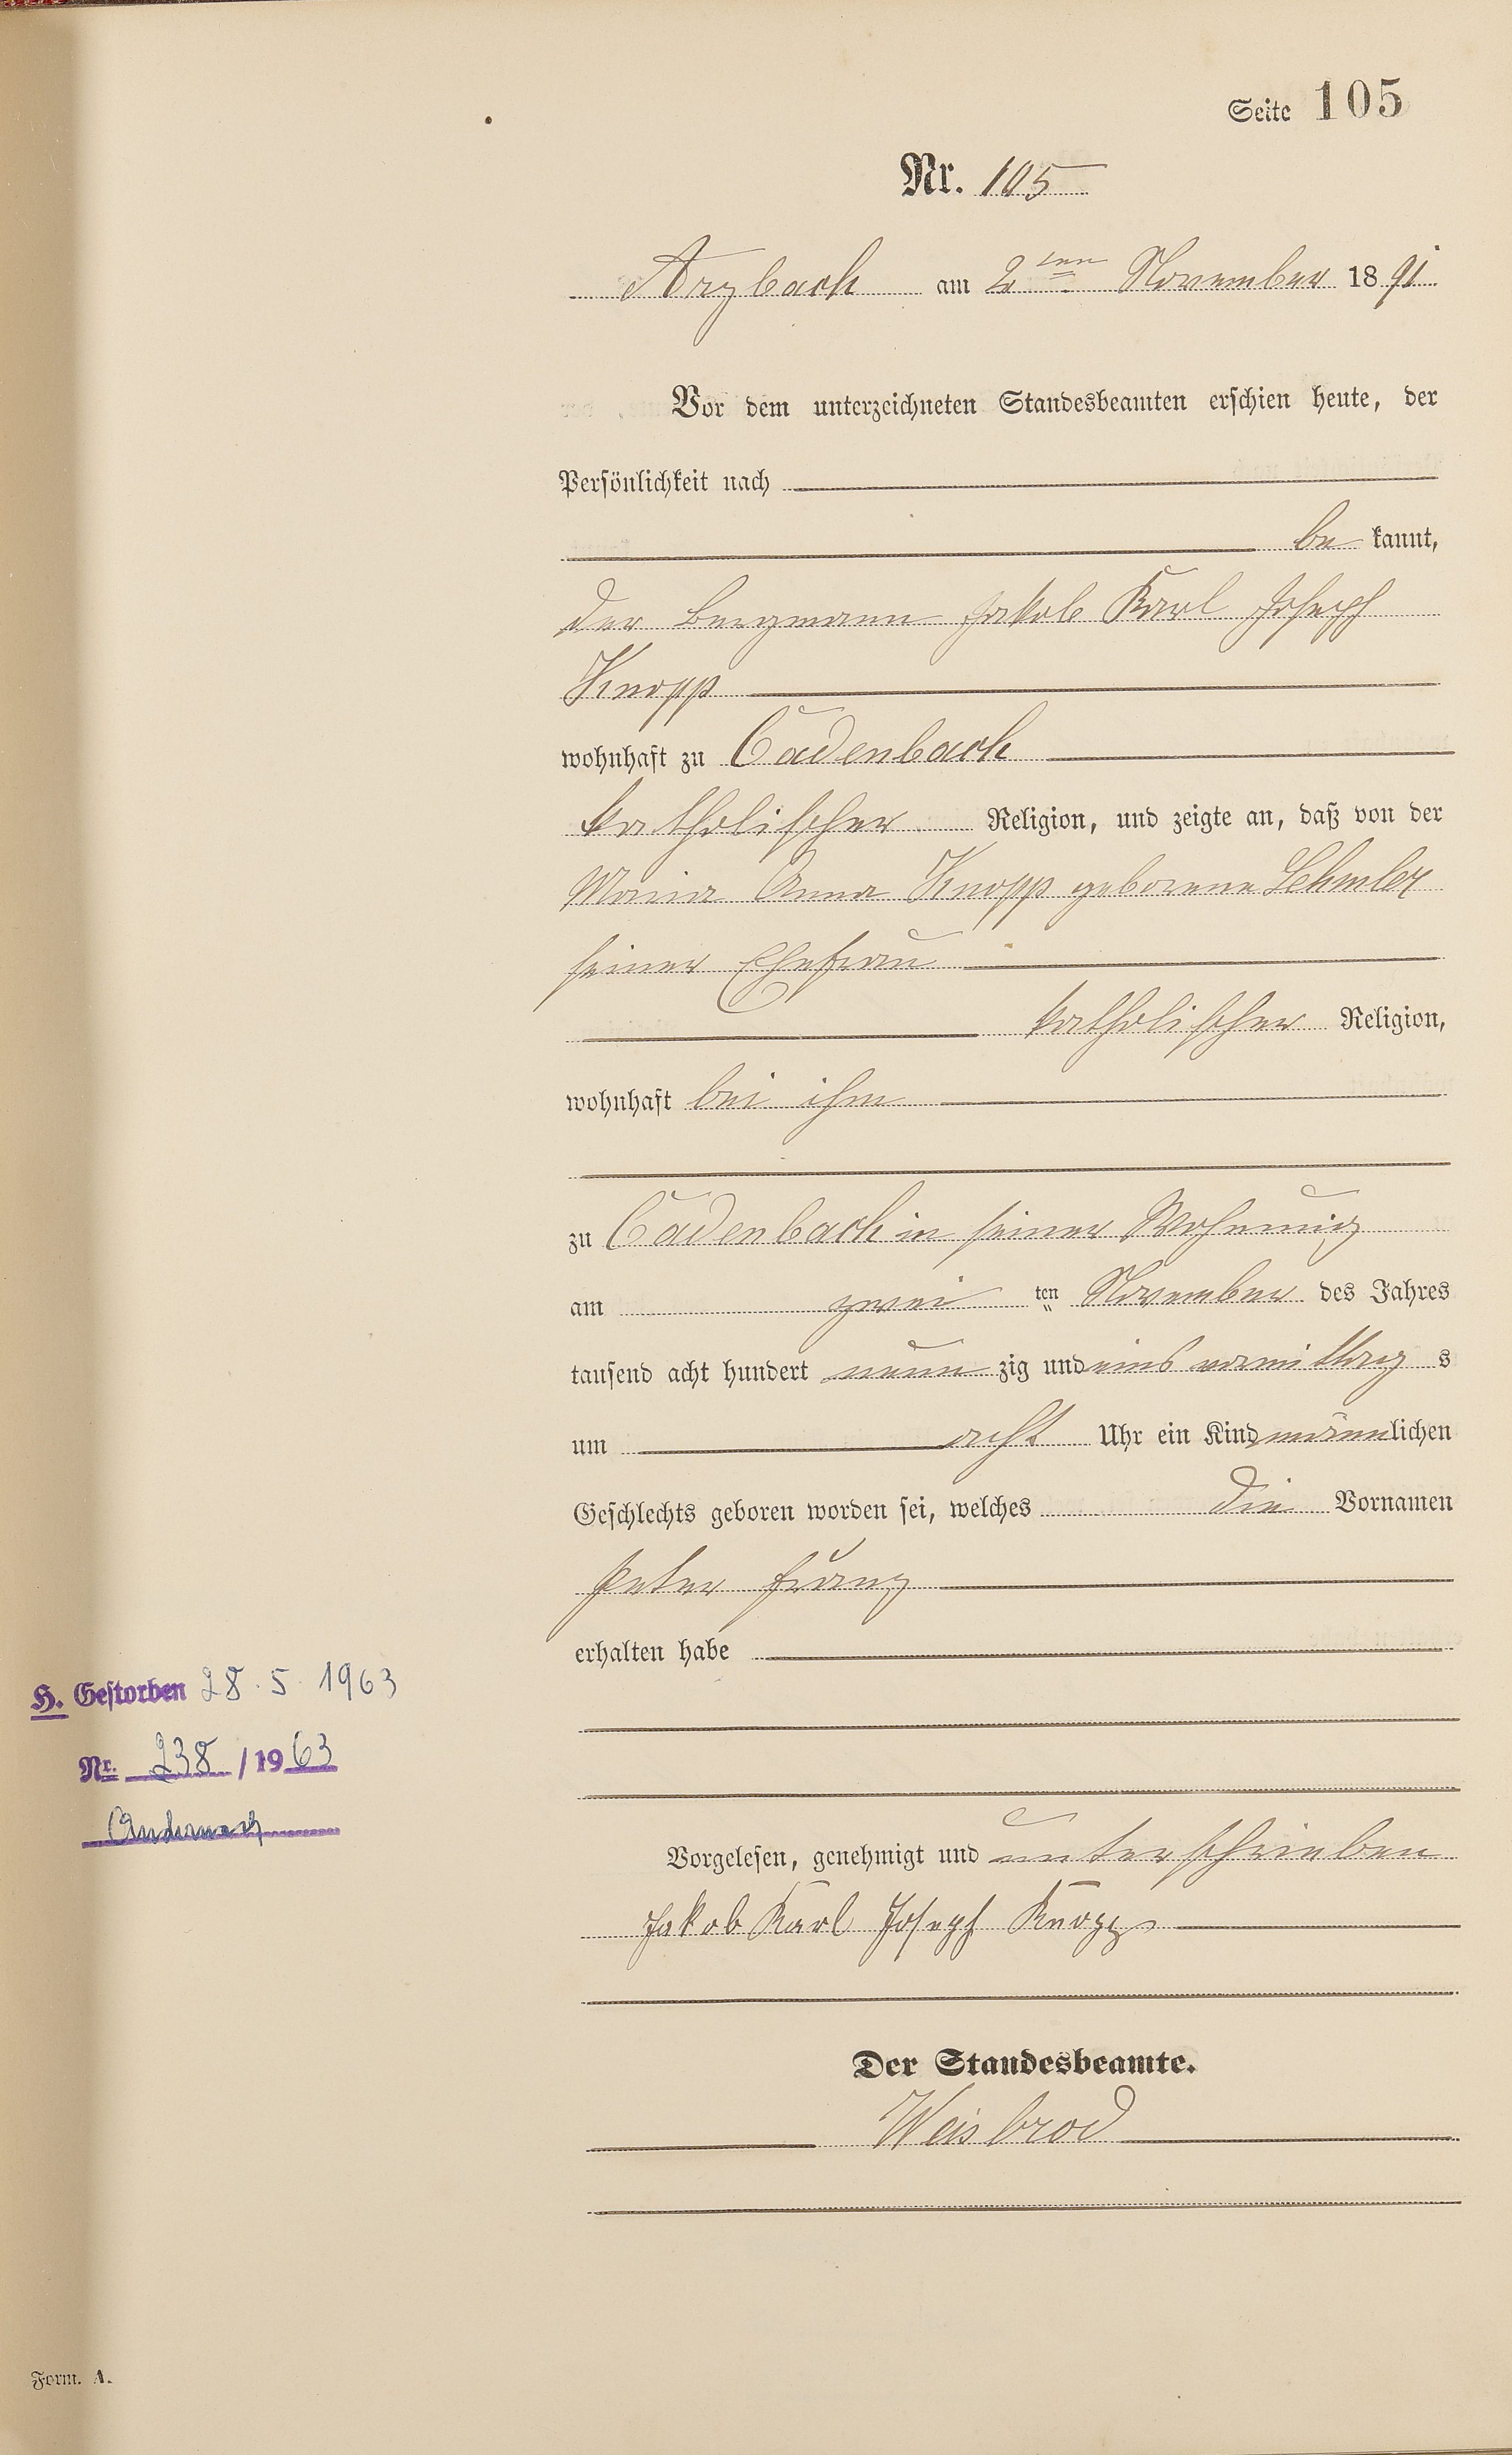 Seite 105
Nr. 105
Arzbach am 2ten November 1891
Vor dem unterzeichneten Standesbeamten erschien heute, der
Persönlichkeit nach
be kannt,
der Bergmann Jakob Karl Joseph
Knopp
wohnhaft zu Cadenbach
katholischer Religion, und zeigte an, daß von der
Maria Anna Knopp geborene
seiner Ehefrau
katholischer Religion,
wohnhaft bei ihm
zu Cadenbach in seiner Wohnung
am zwei ten November des Jahres
tausend acht hundert neun zig und eins vormittag s
um acht Uhr ein Kind männlichen
Geschlechts geboren worden sei, welches die Vornamen
Peter Franz
erhalten habe
H. Gestorben 28. 5. 1963
Nr. 238 / 1963
Andernach
Vorgelesen, genehmigt und unterschrieben
Jakob Karl Joseph Knopp
Der Standesbeamte.
Weisbrod
Form. A.